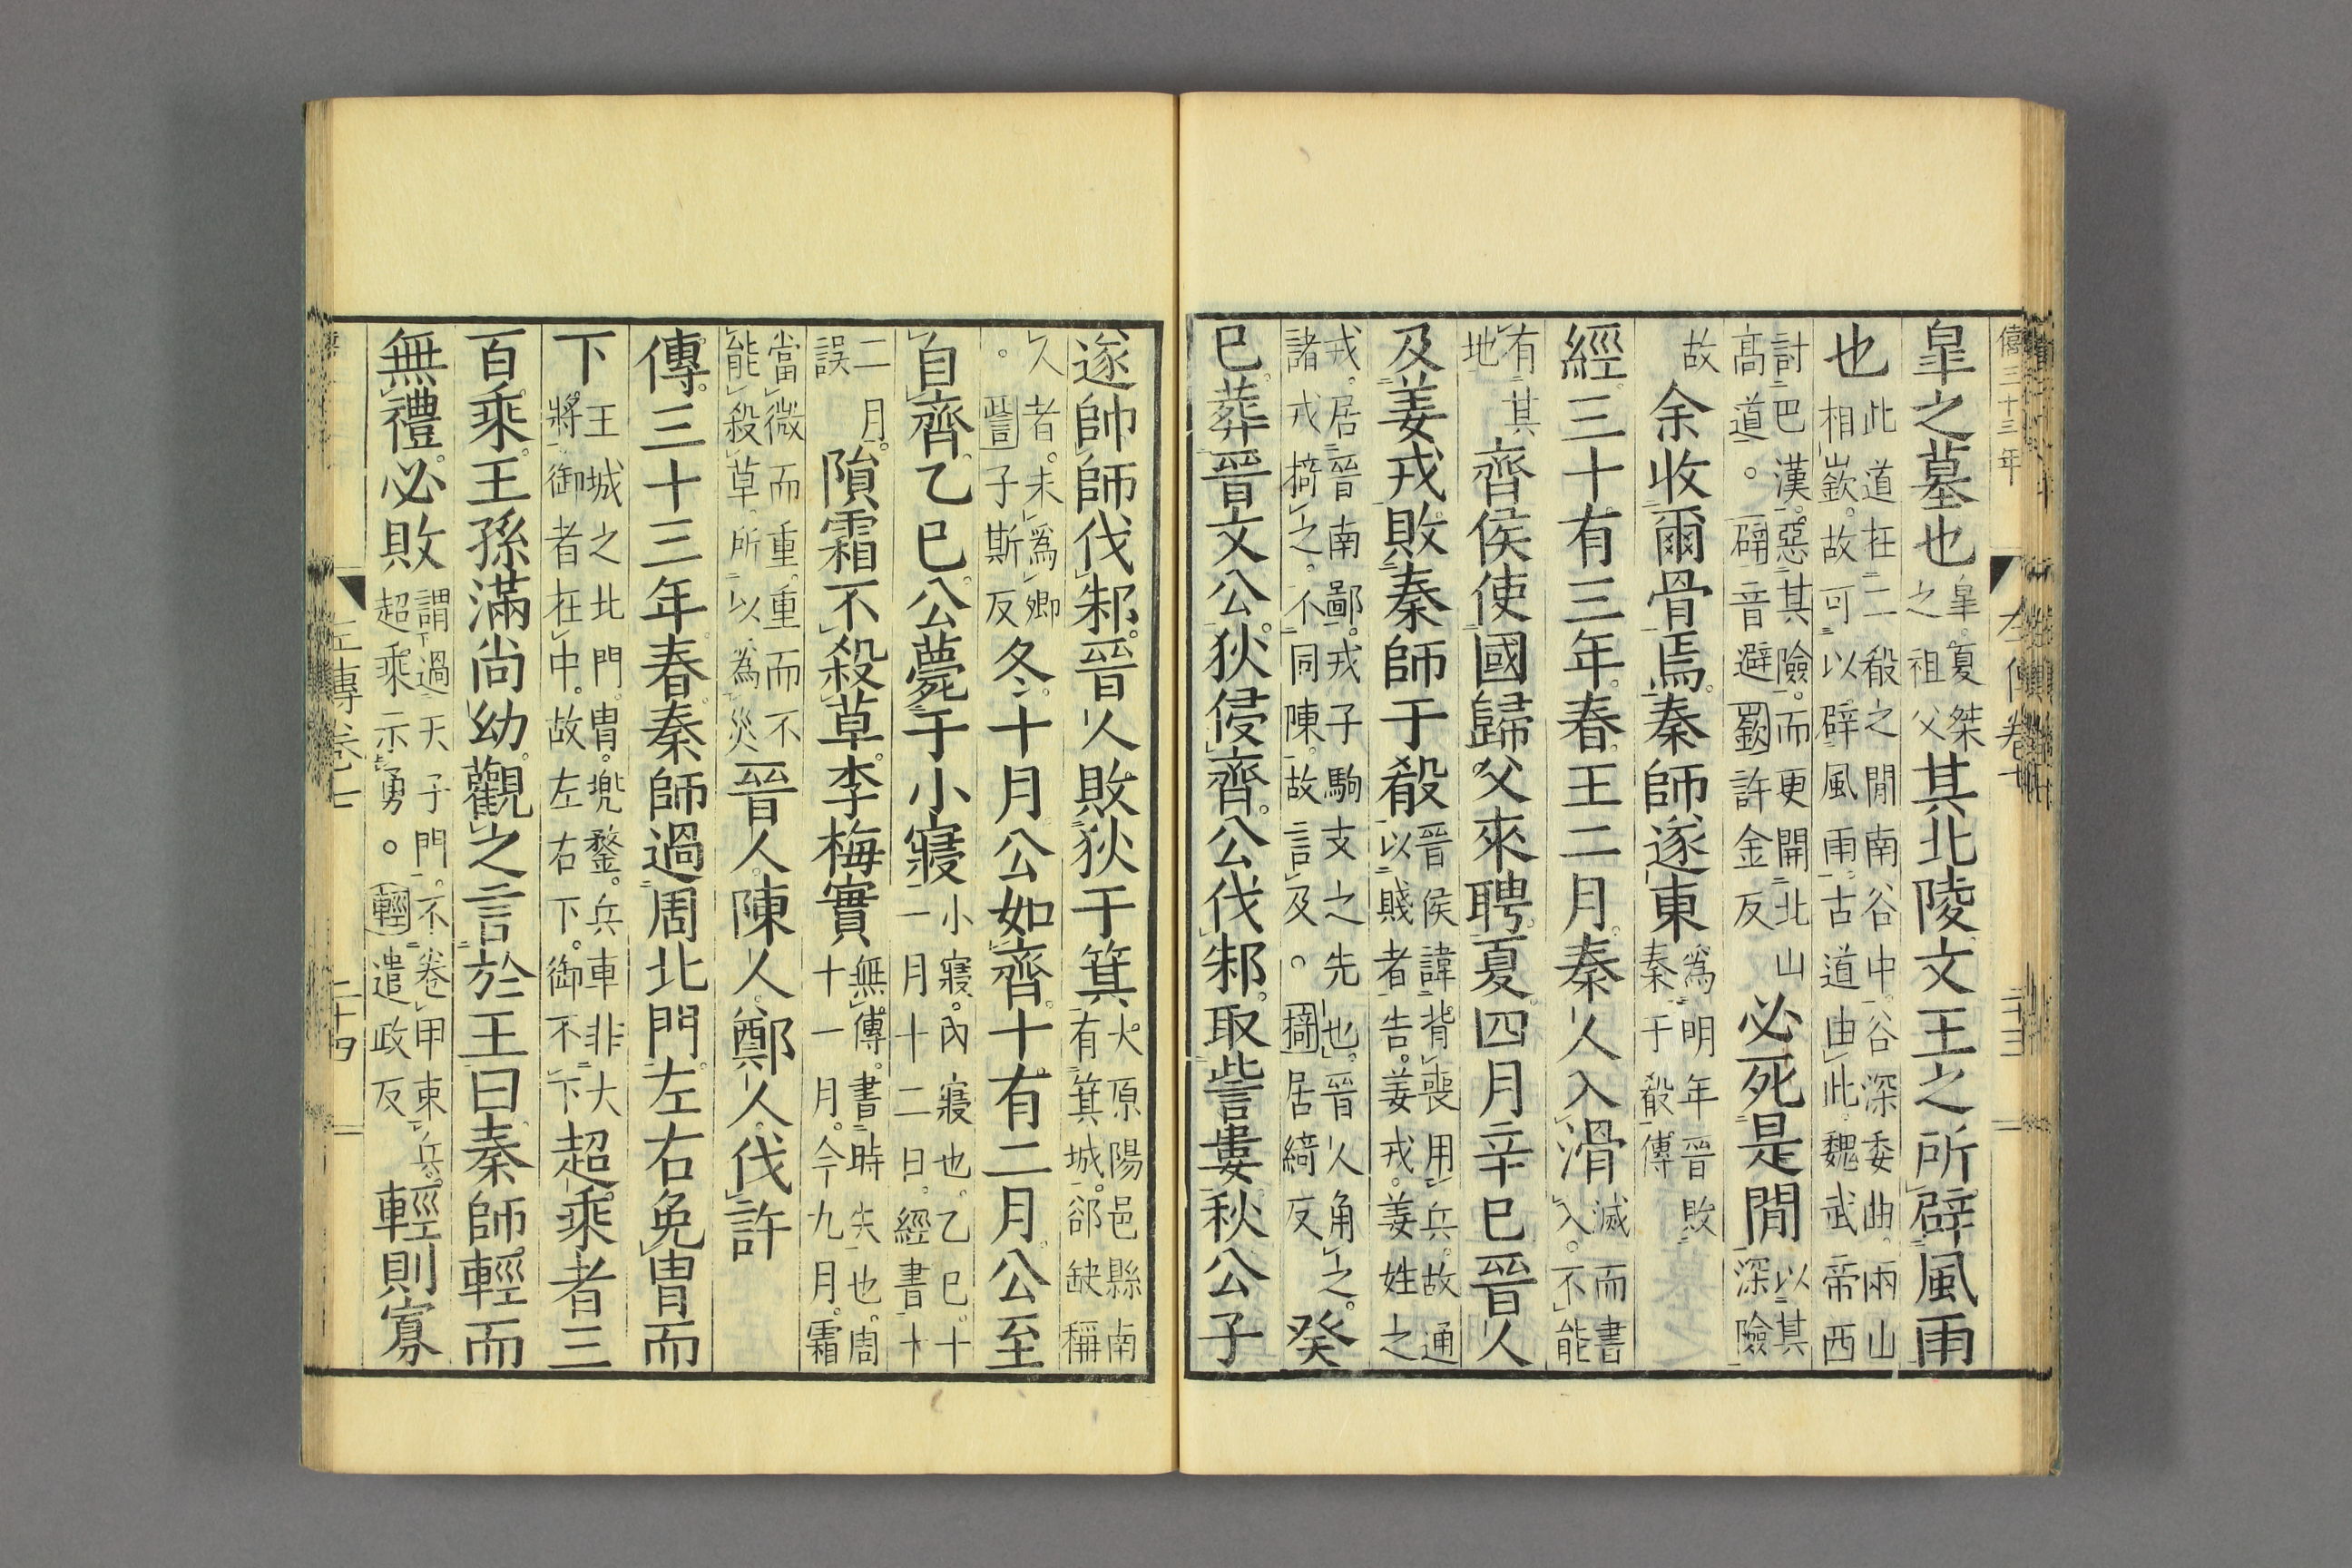 僖三十三年
皐之墓也皐夏桀之祖父其北陵文王之所辟風雨
也此道在二殽之閒南谷中谷深委曲兩山相嶔故可以辟風雨古道由此魏武帝西
討巴漢惡其險而更開北山高道。辟音避嶔許金反必死是閒以其深險
故余收爾骨焉秦師遂東爲明年晉敗秦于殽傳
經三十有三年春王二月秦人入滑滅而書入不能
有其地齊侯使國歸父來聘夏四月辛巳晉人
及姜戎敗秦師于殽晉侯諱背喪用兵故通以賤者告姜戎姜姓之
戎居晉南鄙戎子駒支之先也晉人角之諸戎掎之不同陳故言及。掎居綺反癸
巳葬晉文公狄侵齊公伐邾取訾婁秋公子
遂帥師伐邾晉人敗狄于箕大原陽邑縣南有箕城郤缺稱
人者未爲卿。訾子斯反冬十月公如齊十有二月公至
自齊乙巳公薨于小寢小寢內寢也乙巳十一月十二日經書十
二月誤隕霜不殺草李梅實無傳書時失也周十一月今九月霜
當微而重重而不能殺草所以爲災晉人陳人鄭人伐許
傳三十三年春秦師過周北門左右免冑而
下王城之北門冑兜鍪兵車非大將御者在中故左右下御不下超乘者三
百乘王孫滿尚幼觀之言於王曰秦師輕而
無禮必敗謂過天子門不卷甲束兵超乘示勇。輕遣政反輕則寡
左傳卷七
二十四